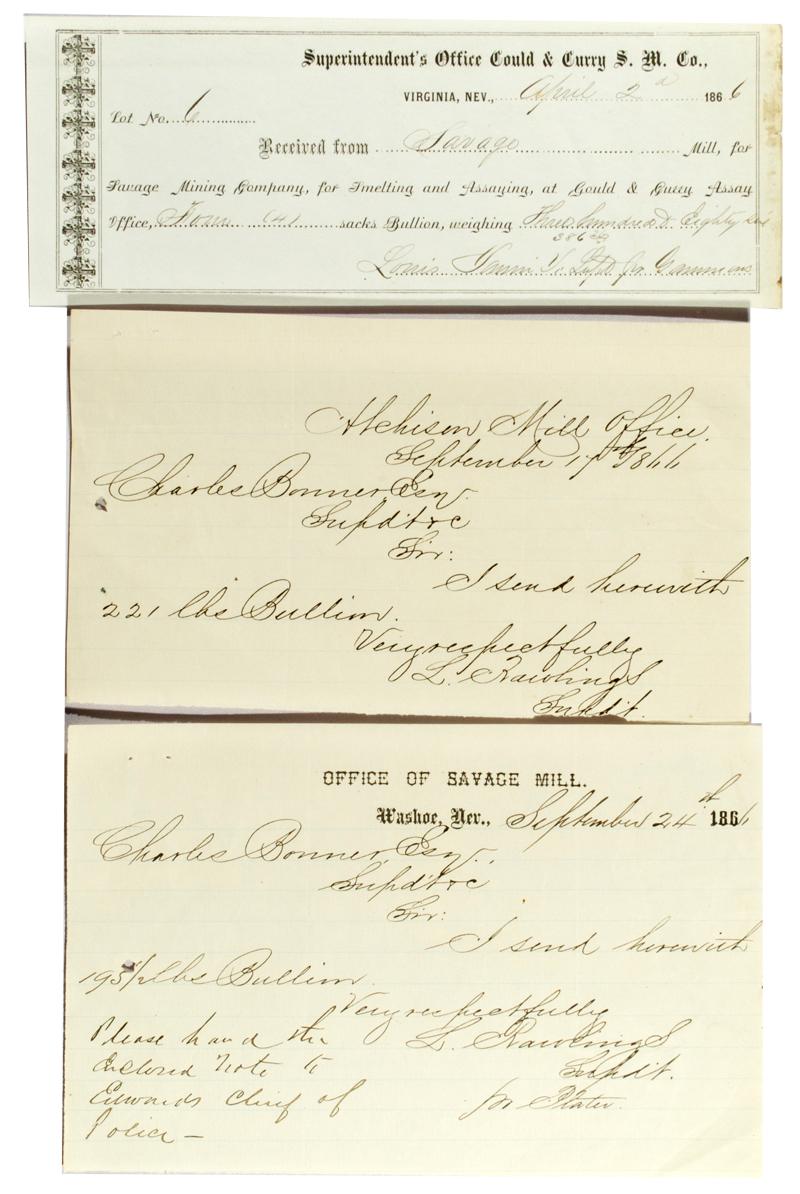 Superintendent's Office Gould & Curry S. M. Co.,
VIRGINIA, NEV., April 2d 1866
Lot No. 6
Received from Savage Mill, for
Savage Mining Company, for Smelting and Assaying, at Gould & Curry Assay
Office, Four (4) sacks Bullion, weighing Three hundred Eighty six
386
Louis
Atchison Mill Office.
September 17th 1866
Charles Bonner, Esq.
Supdt &c
Sir:
I send herewith
221 lbs Bullion.
Very respectfully
L. Rawlings
Supdt.
OFFICE OF SAVAGE MILL.
Washoe, Nev., September 24th 1866
Charles Bonner, Esq.,
Supdt &c
Sir:
I send herewith
193 1/2 lbs Bullion.
Very respectfully
L. Rawlings
Supdt.
for Slater.
Please hand the
enclosed note to
Edwards Chief of
Police —